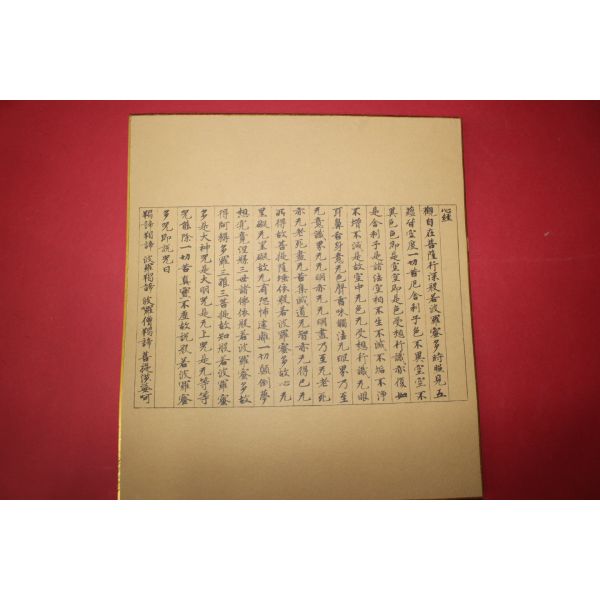 心經
觀自在菩薩行深般若波羅蜜多時照見五
蘊皆空度一切苦厄舍利子色不異空空不
異色色即是空空即是色受想行識亦復如
是舍利子是諸法空相不生不滅不垢不淨
不增不減是故空中无色无受想行識无眼
耳鼻舌身意无色聲香味觸法无眼界乃至
无意識界无无明亦无无明盡乃至无老死
亦无老死盡无苦集滅道无智亦无得以无
所得故菩提薩埵依般若波羅蜜多故心无
罣礙无罣礙故无有恐怖遠離一切顛倒夢
想究竟涅槃三世諸佛依般若波羅蜜多故
得阿耨多羅三藐三菩提故知般若波羅蜜
多是大神咒是大明咒是无上咒是无等等
咒能除一切苦真實不虛故說般若波羅蜜
多咒即說咒曰
揭諦揭諦 波羅揭諦 波羅僧揭諦 菩提薩婆呵